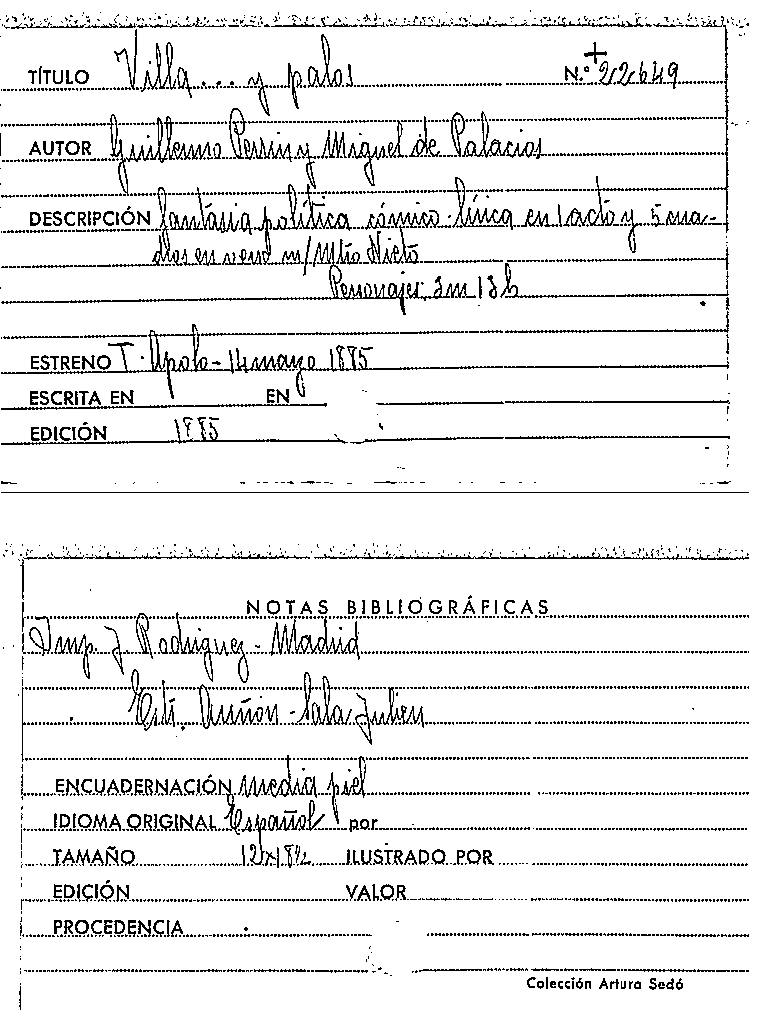 TÍTULO Villa... y palos N.º +22649
AUTOR Guillermo Perrin y Miguel de Palacios
DESCRIPCIÓN fantasia politica cómico-lírica en 1 acto y 5 cua-
dros en verso m/ Mtro Nieto
Personajes: 3m 13h
ESTRENO T. Apolo - 14 mayo 1885
ESCRITA EN EN
EDICIÓN 1885
NOTAS BIBLIOGRÁFICAS
Imp. J. Rodriguez - Madrid
Est. Auñon - Sala Julien
ENCUADERNACIÓN media piel
IDIOMA ORIGINAL Español por
TAMAÑO 12x18½ ILUSTRADO POR
EDICIÓN VALOR
PROCEDENCIA
Colección Arturo Sedó